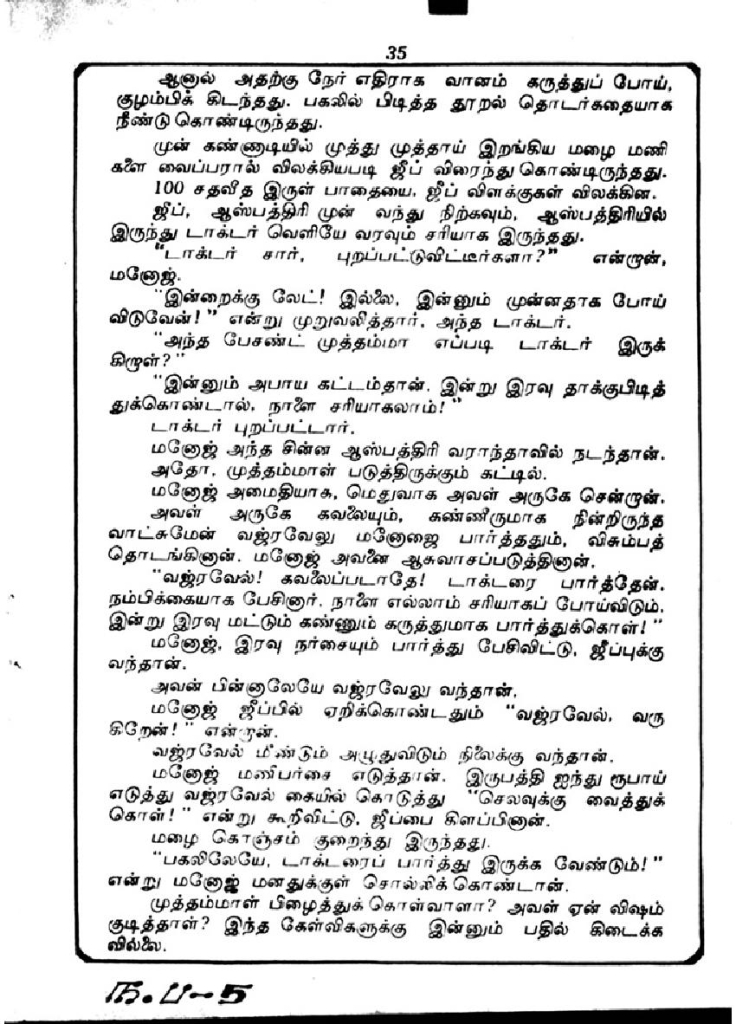 35
ஆனால் அதற்கு நேர் எதிராக வானம் கருத்துப் போய்,
குழம்பிக் கிடந்தது. பகலில் பிடித்த தூறல் தொடர்கதையாக
நீண்டு கொண்டிருந்தது.
முன் கண்ணாடியில் முத்து முத்தாய் இறங்கிய மழை மணி
களை வைப்பரால் விலக்கியபடி ஜீப் விரைந்து கொண்டிருந்தது.
100 சதவீத இருள் பாதையை, ஜீப் விளக்குகள் விலக்கின.
ஜீப், ஆஸ்பத்திரி முன் வந்து நிற்கவும், ஆஸ்பத்திரியில்
இருந்து டாக்டர் வெளியே வரவும் சரியாக இருந்தது.
"டாக்டர் சார், புறப்பட்டுவிட்டீர்களா?" என்றான்,
மனோஜ்.
"இன்றைக்கு லேட்! இல்லை, இன்னும் முன்னதாக போய்
விடுவேன்!" என்று முறுவலித்தார், அந்த டாக்டர்.
"அந்த பேசண்ட் முத்தம்மா எப்படி டாக்டர் இருக்
கிறாள்?"
"இன்னும் அபாய கட்டம்தான். இன்று இரவு தாக்குபிடித்
துக்கொண்டால், நாளை சரியாகலாம்!"
டாக்டர் புறப்பட்டார்.
மனோஜ் அந்த சின்ன ஆஸ்பத்திரி வராந்தாவில் நடந்தான்.
அதோ, முத்தம்மாள் படுத்திருக்கும் கட்டில்.
மனோஜ் அமைதியாக, மெதுவாக அவள் அருகே சென்றான்.
அவள் அருகே கவலையும், கண்ணீருமாக நின்றிருந்த
வாட்சுமேன் வஜ்ரவேலு மனோஜை பார்த்ததும், விசும்பத்
தொடங்கினான். மனோஜ் அவனை ஆசுவாசப்படுத்தினான்.
"வஜ்ரவேல்! கவலைப்படாதே! டாக்டரை பார்த்தேன்.
நம்பிக்கையாக பேசினார். நாளை எல்லாம் சரியாகப் போய்விடும்.
இன்று இரவு மட்டும் கண்ணும் கருத்துமாக பார்த்துக்கொள்!"
மனோஜ், இரவு நர்சையும் பார்த்து பேசிவிட்டு, ஜீப்புக்கு
வந்தான்.
அவன் பின்னாலேயே வஜ்ரவேலு வந்தான்,
மனோஜ் ஜீப்பில் ஏறிக்கொண்டதும் "வஜ்ரவேல், வரு
கிறேன்!" என்றான்.
வஜ்ரவேல் மீண்டும் அழுதுவிடும் நிலைக்கு வந்தான்.
மனோஜ் மணிபர்சை எடுத்தான். இருபத்தி ஐந்து ரூபாய்
எடுத்து வஜ்ரவேல் கையில் கொடுத்து "செலவுக்கு வைத்துக்
கொள்!" என்று கூறிவிட்டு, ஜீப்பை கிளப்பினான்.
மழை கொஞ்சம் குறைந்து இருந்தது.
"பகலிலேயே, டாக்டரைப் பார்த்து இருக்க வேண்டும்!"
என்று மனோஜ் மனதுக்குள் சொல்லிக் கொண்டான்.
முத்தம்மாள் பிழைத்துக் கொள்வாளா? அவள் ஏன் விஷம்
குடித்தாள்? இந்த கேள்விகளுக்கு இன்னும் பதில் கிடைக்க
வில்லை.
ந.ப-5